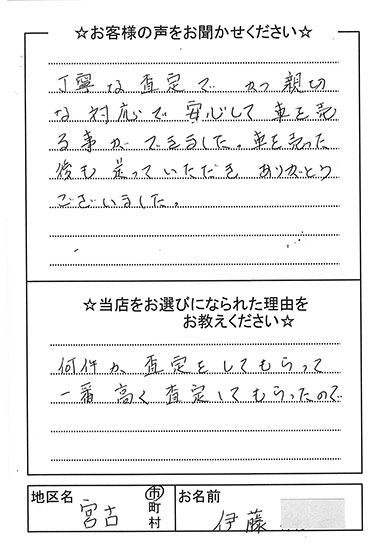 ☆お客様の声をお聞かせください☆
丁寧な査定で かつ親切
な対応で 安心して 車を売
る事ができました。車を売った
後も 送っていただき ありがとう
ございました。
☆当店をお選びになられた理由を
お教えください☆
何件か 査定をしてもらって
一番 高く 査定してもらったので
地区名 宮古 市町村
お名前 伊藤